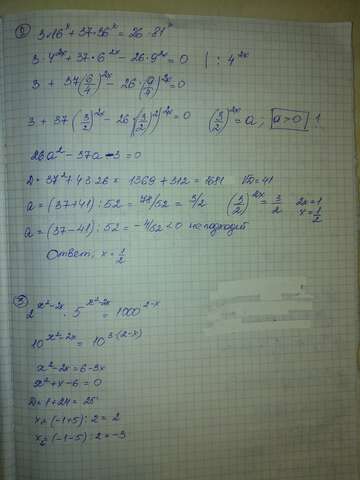 3·16ˣ + 37·36ˣ = 26·81ˣ
3·4²ˣ + 37·6²ˣ - 26·9²ˣ = 0 | : 4²ˣ
3 + 37(6/4)²ˣ - 26·(9/4)²ˣ = 0
3 + 37(3/2)²ˣ - 26((3/2)²)²ˣ = 0 (3/2)²ˣ = a; a>0 !
26a² - 37a - 3 = 0
D = 37² + 4·3·26 = 1369 + 312 = 1681 √D = 41
a = (37+41) : 52 = 78/52 = 3/2 (3/2)²ˣ = 3/2 2x = 1
x = 1/2
a = (37-41) : 52 = -4/52 < 0 не подходит
Ответ: x = 1/2
2^(x²-2x) · 5^(x²-2x) = 1000^(2-x)
10^(x²-2x) = 10^(3·(2-x))
x² - 2x = 6 - 3x
x² + x - 6 = 0
D = 1 + 24 = 25
x₁ = (-1+5) : 2 = 2
x₂ = (-1-5) : 2 = -3